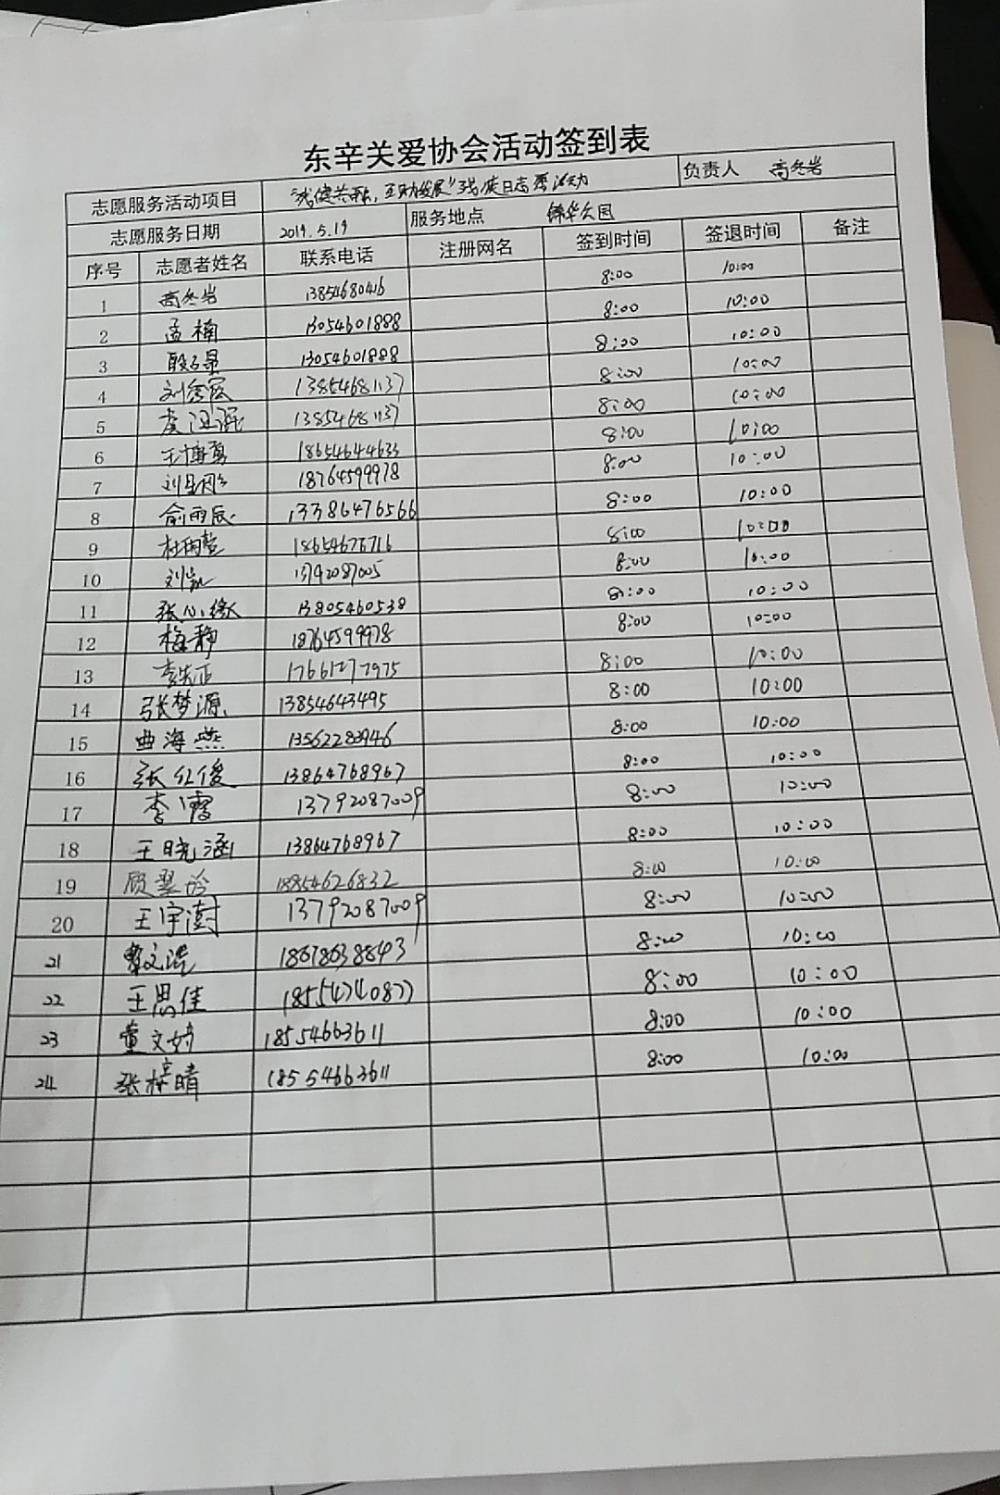 东辛关爱协会活动签到表
志愿服务活动项目 "残健共融，互助发展"残疾日志愿活动 负责人 高冬岩
志愿服务日期 2019.5.19 服务地点 锦华公园
序号 志愿者姓名 联系电话 注册网名 签到时间 签退时间 备注
1 高冬岩 13854680416 8:00 10:00
2 孟楠 13054601888 8:00 10:00
3 13054601888 8:00 10:00
4 13854681137 8:00 10:00
5 13854681137 8:00 10:00
6 王博勇 18654644633 8:00 10:00
7 18764599978 8:00 10:00
8 俞雨辰 13386476566 8:00 10:00
9 18654676716 8:00 10:00
10 13792087005 8:00 10:00
11 张心缘 13805460538 8:00 10:00
12 梅静 18764599978 8:00 10:00
13 17661277975 8:00 10:00
14 张梦源 13854643495 8:00 10:00
15 曲海燕 8:00 10:00
16 张红俊 13864768967 8:00 10:00
17 李霄 13792087009 8:00 10:00
18 王晓涵 13864768967 8:00 10:00
19 18854626832 8:00 10:00
20 王宇澍 13792087009 8:00 10:00
21 8:00 10:00
22 王思佳 18554740877 8:00 10:00
23 董文婷 18554663611 8:00 10:00
24 张梓晴 18554663611 8:00 10:00